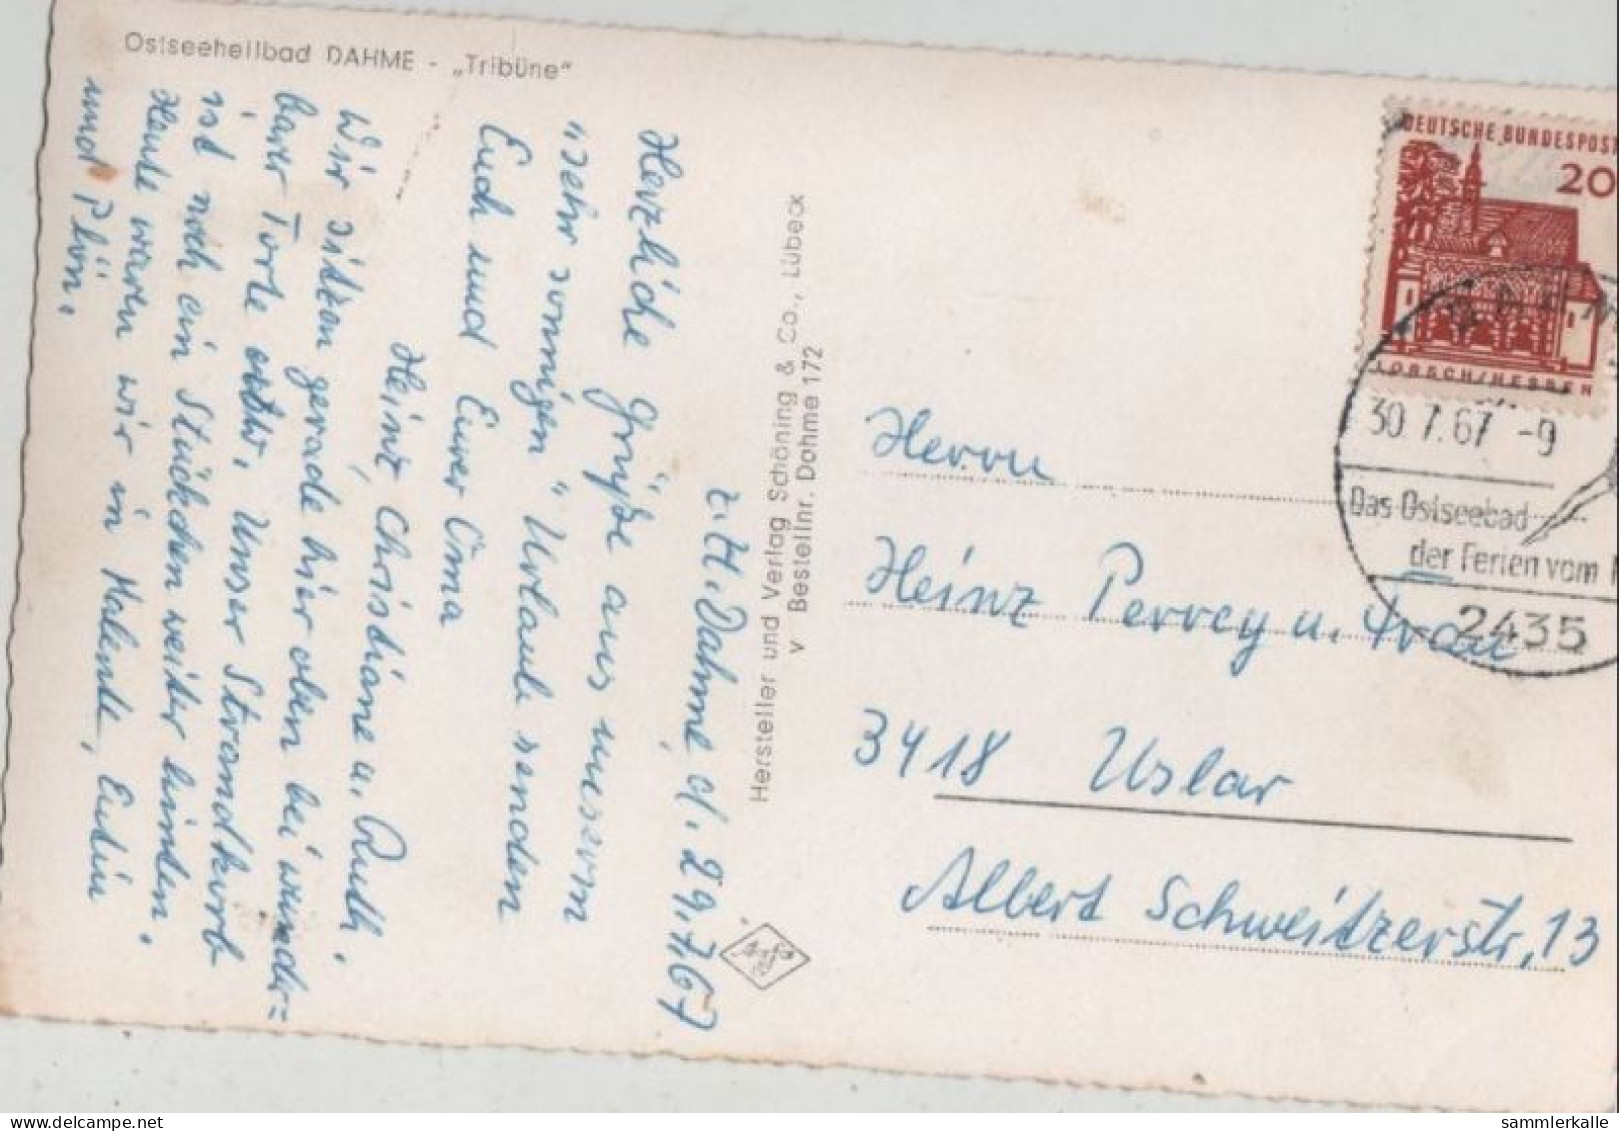 Ostseeheilbad DAHME - „Tribüne"
z. Zt. Dahme, d. 29.7.67
Herzliche Grüße aus unserem
"sehr sonnigen" Urlaub senden
Euch und Eurer Oma
Heinz, Christiane u. Ruth.
Wir sitzen gerade hier oben bei wunder=
barer Torte. Unser Strandkorb
ist noch ein Stückchen weiter hinten.
Heute waren wir in Malente, Eutin
und Plön.
Hersteller und Verlag Schöning & Co., Lübeck
v Bestellnr. Dahme 172
DEUTSCHE BUNDESPOST
20
LORSCH/HESSEN
30.7.67 -9
Das Ostseebad
der Ferien vom
2435
Herrn
Heinz Perrey u. Frau
3418 Uslar
Albert Schweitzerstr. 13
sammlerkalle